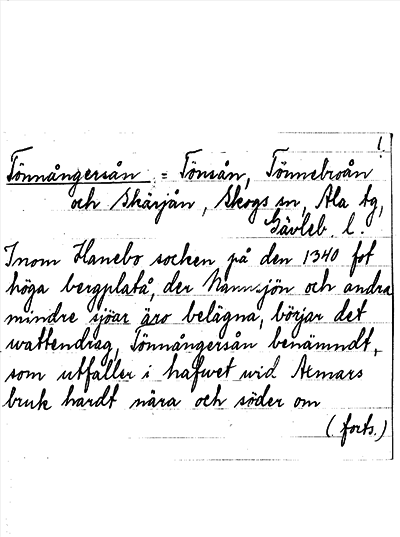 1.
Tönnångersån = Tönsån, Tönnebroån
och Skärjån, Skogs sn, Ala tg,
Gävleb. l.
Inom Hanebo socken på den 1340 fot
höga bergplatå, der Hamsjön och andra
mindre sjöar äro belägna, börjar det
wattendrag, Tönnångersån benämndt,
som utfaller i hafwet wid Axmars
bruk hardt nära och söder om
(forts.)